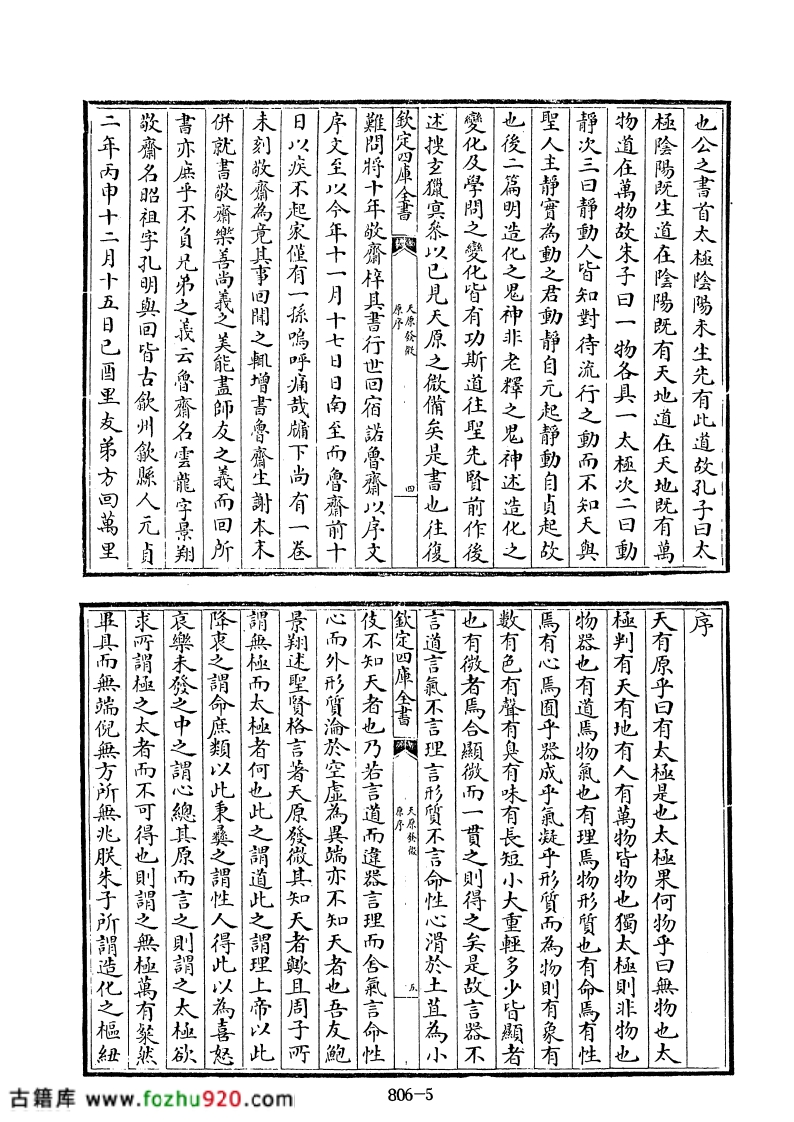 也公之書首太極陰陽未生先有此道故孔子曰太
極陰陽既生道在陰陽既有天地道在天地既有萬
物道在萬物故朱子曰一物各具一太極次二曰動
靜次三曰靜動人皆知對待流行之動而不知天與
聖人主靜實為動之君動靜自元起靜動自貞起故
也後二篇明造化之鬼神非老釋之鬼神述造化之
變化及學問之變化皆有功斯道往聖先賢前作後
述搜玄獵冥參以已見天原之微備矣是書也往復
欽定四庫全書
天原發微
原序
四
難問將十年敬齋梓其書行世回宿諾魯齋以序文
序文至以今年十一月十七日日南至而魯齋前十
日以疾不起家僅有一孫嗚呼痛哉牖下尚有一卷
未刻敬齋為竟其事回聞之輒增書魯齋生謝本末
併就書敬齋樂善尚義之美能盡師友之義而回所
書亦庶乎不負兄弟之義云魯齋名雲龍字景翔
敬齋名昭祖字孔明與回皆古歙州歙縣人元貞
二年丙申十二月十五日己酉里友弟方回萬里
序
天有原乎曰有太極是也太極果何物乎曰無物也太
極判有天有地有人有萬物皆物也獨太極則非物也
物器也有道焉物氣也有理焉物形質也有命焉有性
焉有心焉囿乎器成乎氣凝乎形質而為物則有象有
數有色有聲有臭有味有長短小大重輕多少皆顯者
也有微者焉合顯微而一貫之則得之矣是故言器不
言道言氣不言理言形質不言命性心滑於土苴為小
欽定四庫全書
天原發微
原序
五
伎不知天者也乃若言道而違器言理而舍氣言命性
心而外形質淪於空虛為異端亦不知天者也吾友鮑
景翔述聖賢格言著天原發微其知天者歟且周子所
謂無極而太極者何也此之謂道此之謂理上帝以此
降衷之謂命庶類以此秉彝之謂性人得此以為喜怒
哀樂未發之中之謂心總其原而言之則謂之太極欲
求所謂極之太者而不可得也則謂之無極萬有粲然
畢具而無端倪無方所無兆朕朱子所謂造化之樞紐
806-5
古籍库 www.fozhu920.com